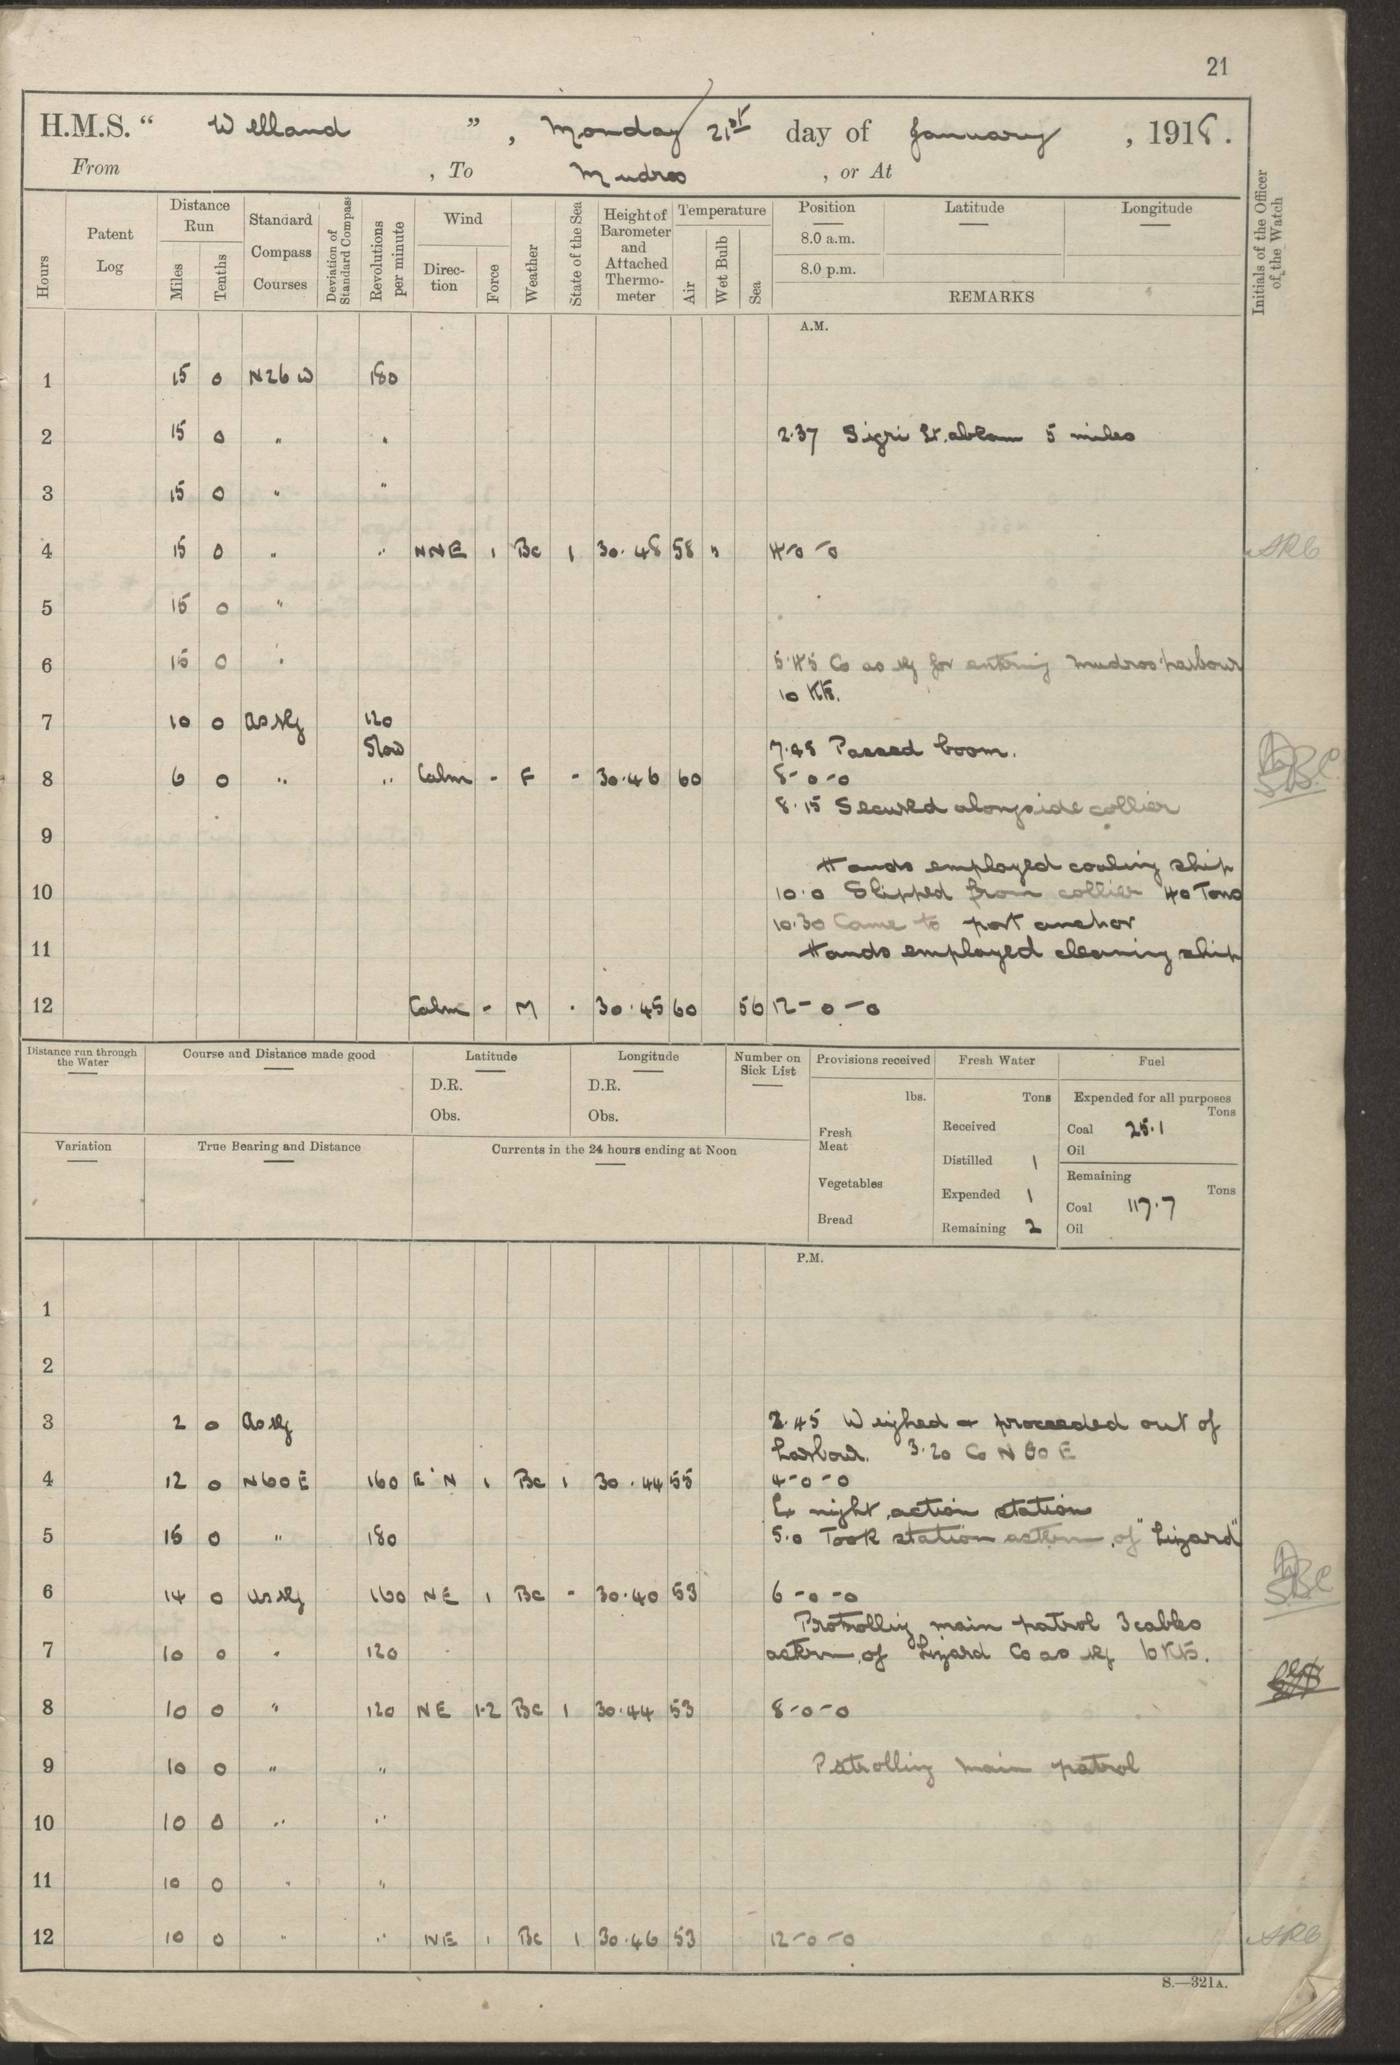 21
H.M.S. " Welland ", Monday 21st day of January, 1918.
From , To Mudros , or At
Hours
Patent Log
Distance Run
Miles
Tenths
Standard Compass Courses
Deviation of Standard Compass
Revolutions per minute
Wind
Direction
Force
Weather
State of the Sea
Height of Barometer and Attached Thermometer
Temperature
Air
Wet Bulb
Sea
Position
8.0 a.m.
8.0 p.m.
Latitude
Longitude
REMARKS
Initials of the Officer of the Watch
A.M.
1 15 0 N26W 180
2 15 0 " "
2.37 Sigri Lt. abeam 5 miles
3 15 0 " "
4 15 0 " " NNE 1 Bc 1 30.48 58 " 4-0-0
5 15 0 "
6 15 0 "
5.45 Co as rq for entering Mudros harbour
10 Kts.
7 10 0 as rq 120
Slow
7.48 Passed boom.
8 6 0 " " Calm - F - 30.46 60 8-0-0
8.15 Secured alongside collier
9
Hands employed coaling ship
10 10.0 Slipped from collier 40 Tons
10.30 Came to port anchor
11 Hands employed cleaning ship
12 Calm - M . 30.45 60 56 12-0-0
Distance run through the Water
Course and Distance made good
Latitude
D.R.
Obs.
Longitude
D.R.
Obs.
Number on Sick List
Provisions received
lbs.
Fresh Meat
Vegetables
Bread
Fresh Water
Tons
Received
Distilled 1
Expended 1
Remaining 2
Fuel
Expended for all purposes
Tons
Coal 25.1
Oil
Remaining
Tons
Coal 117.7
Oil
Variation
True Bearing and Distance
Currents in the 24 hours ending at Noon
P.M.
1
2
3 2 0 as rq 2.45 Weighed & proceeded out of
harbour. 3.20 Co N60E
4 12 0 N60E 160 E'N 1 Bc 1 30.44 55 4-0-0
Ex night action station
5 16 0 " 180 5.0 Took station astern of "Lizard"
6 14 0 as rq 160 NE 1 Bc - 30.40 53 6-0-0
Protrollig main patrol 3 cables
7 10 0 " 120 astern of Lizard Co as rq 10 Kts.
8 10 0 " 120 NE 1.2 Bc 1 30.44 53 8-0-0
9 10 0 " " Patrolling main patrol
10 10 0 " "
11 10 0 " "
12 10 0 " " NE 1 Bc 1 30.46 53 12-0-0
S.—321A.